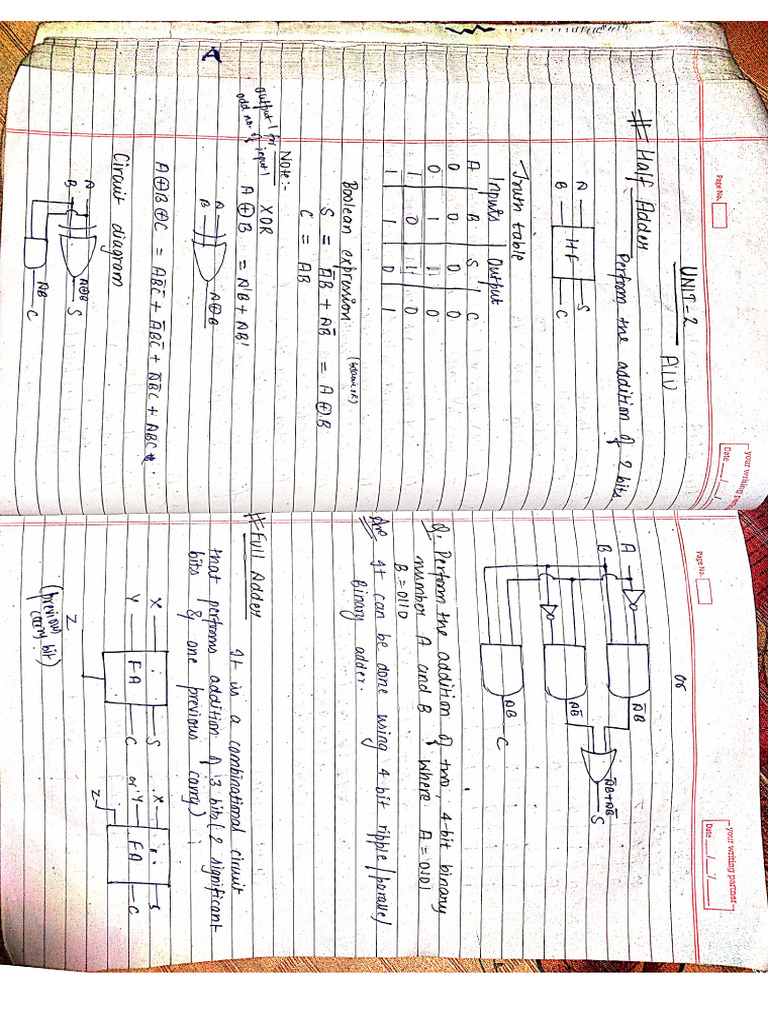 Page No.
your writing partner
Date
UNIT-2
ALU
# Half Adder
Perform the addition of 2 bits
A
B
HF
S
C
Truth table
Inputs | Output
A | B | S | C
0 | 0 | 0 | 0
0 | 1 | 1 | 0
1 | 0 | 1 | 0
1 | 1 | 0 | 1
Boolean expression
S = A̅B + AB̅ = A⊕B
C = AB
Note:-
output 1 for
odd no. of input 1
XOR
A⊕B = A'B + AB'
A
B
A⊕B
A⊕B⊕C = AB̅C̅ + A̅BC̅ + A̅B̅C + ABC
Circuit diagram
A
B
A⊕B
S
AB
C
Page No.
your writing partner
Date
or
A
B
A̅B
AB̅
A̅B+AB̅
S
AB
C
Q. Perform the addition of two, 4-bit binary
number A and B where A=0101
B=0110
Ans It can be done using 4 bit ripple/parallel
binary adder.
# Full Adder
It is a combinational circuit
that performs addition of 3 bits (2 significant
bits & one previous carry)
X
Y
Z
FA
S
C
or
X
Y
Z
FA
S
C
(previous
carry bit)